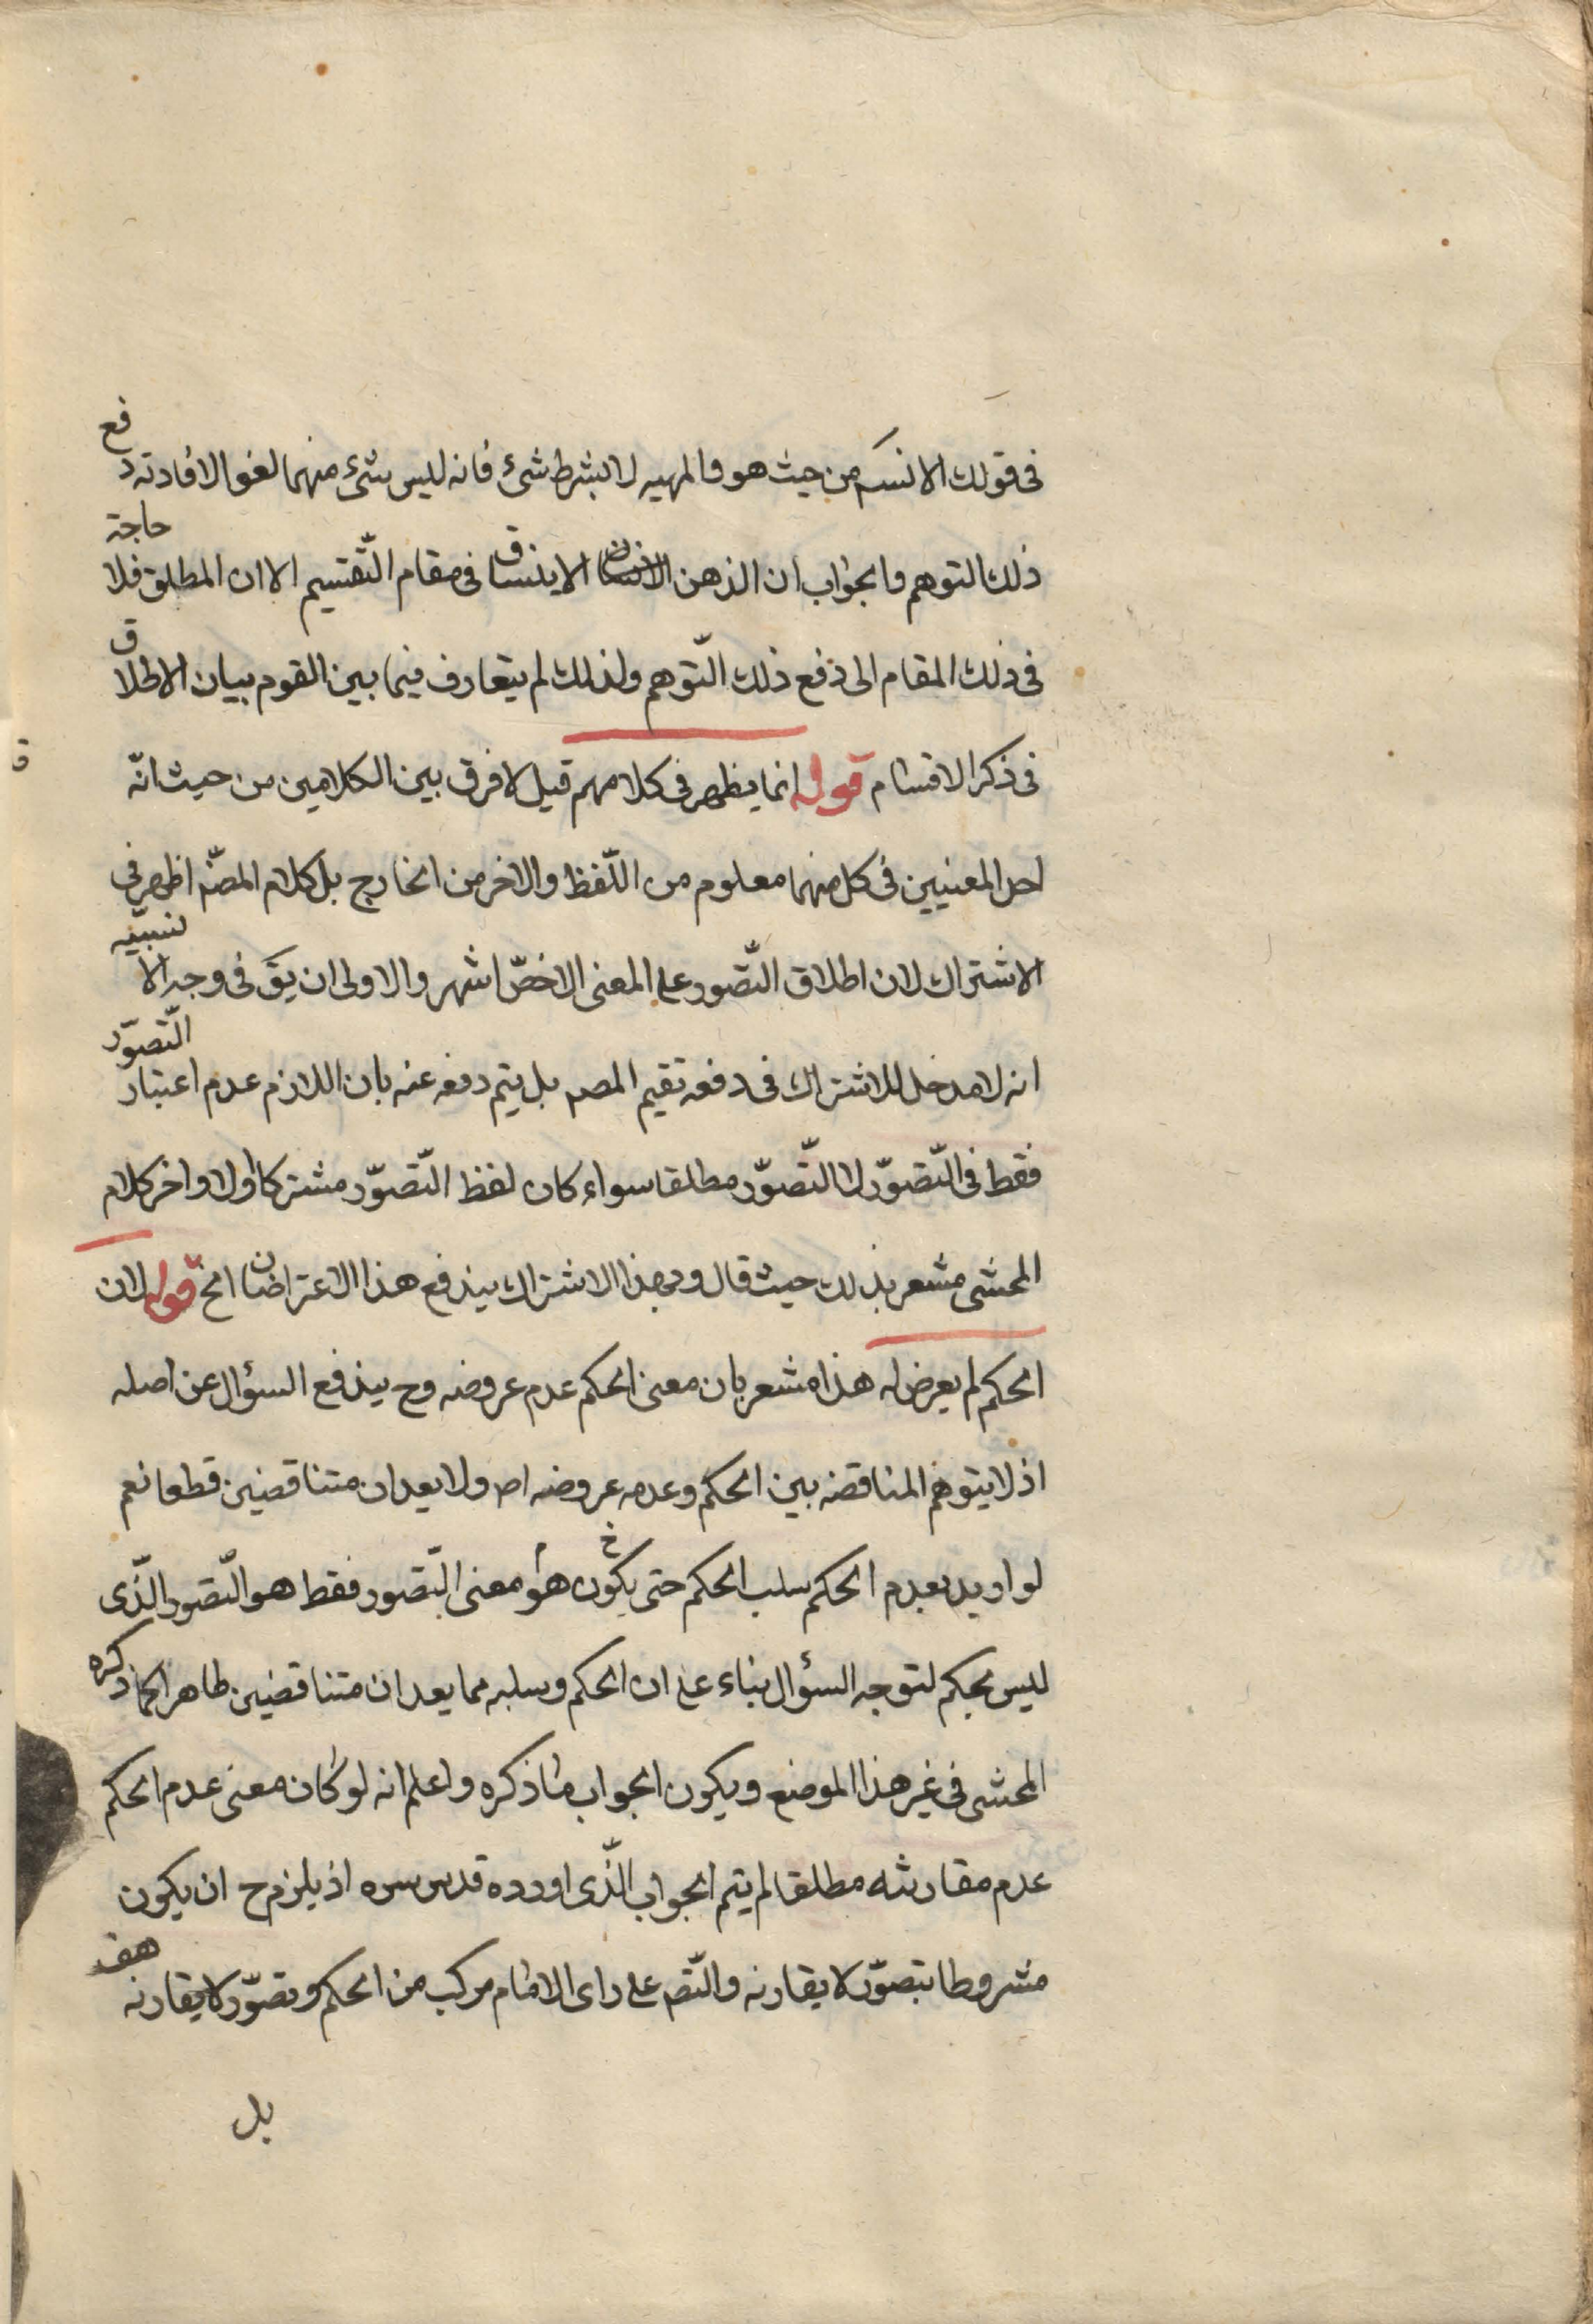 فى قولك الانسـ من حيث هو والمهيه لا بشرط شئ فانه ليس شئ منهما لغوا لافادته دفع
ذلك التوهم والجواب ان الذهن الانسان لا ينساق فى مقام التّقسيم الا ان المطلق فلا حاجة
فى ذلك المقام الى دفع ذلك التّوهم ولذلك لم يتعارف فيما بين القوم بيان الاطلاق
فى ذكر الاقسام قوله انما يظهر فى كلامهم قيل لا فرق بين الكلامين من حيث انّه
احد المعنيين فى كل منهما معلوم من اللّفظ والاخر من الخارج بل كلام المصنّ اظهر فى
الاشتراك لان اطلاق التّصور على المعنى الاخصّ اشهر والاولى ان يقَ فى وجه الا لتنبيه
انه لا مدخل للاشتراك فى دفعه تقيم المصـ بل يتم دفعه عنه بان اللازم عدم اعتبار التّصوّر
فقط فى التّصوّر لا التّصوّر مطلقا سواء كان لفظ التّصوّر مشتركا اولا واخر كلام
المحشى مشعر بذلك حيث قال وبهذا الاشتراك يندفع هذا الاعتراضان الخ قوله لان
الحكم لم يعرض له هذا مشعر بان معنى الحكم عدم عروضه وح يندفع السؤال عن اصله
اذ لا يتوهم المناقضه بين الحكم وعدمه عروضه اصـ ولا يعدان متناقضين قطعا نعم
لو اريد بعدم الحكم سلب الحكم حتى يكون هو معنى التّصور فقط هو التّصور الّذى
ليس بحكم لتوجه السؤال بناء على ان الحكم وسلبه مما يعدان متناقضين ظاهرا كما ذكره
المحشى فى غير هذا الموضع ويكون الجواب ما ذكره واعلم انه لو كان معنى عدم الحكم
عدم مقارنته مطلقا لم يتم الجواب الّذى اورده قدس سره اذ يلزم ح ان يكون
مشروطا بتصوّر لا يقارنه والتّصـ على راى الامام مركب من الحكم وتصوّر لا يقارنه هف
بل